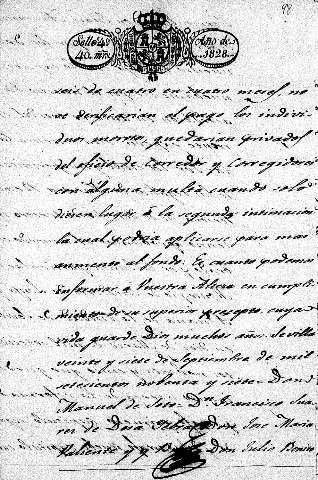 Sello 4º
40 mrs
Año de
1828.
seis de cuatro en cuatro meses no
se verificarian el pago los indivi
duos morosos, quedarian privados
del oficio de Corredor y corregidos
con alguna multa cuando solo
diesen lugar á la segunda intimacion
la cual podia aplicarse para mas
aumento al fondo. Es cuanto podemos
informar á Vuestra Alteza en cumpli
miento de su superior precepto, cuya
vida guarde Dios muchos años. Sevilla
veinte y siete de Septiembre de mil
setecientos noventa y siete. Don
Manuel de Soto. Dn Francisco Sua
rez de Don Jose Maria
Valiente y Don Julio Benito